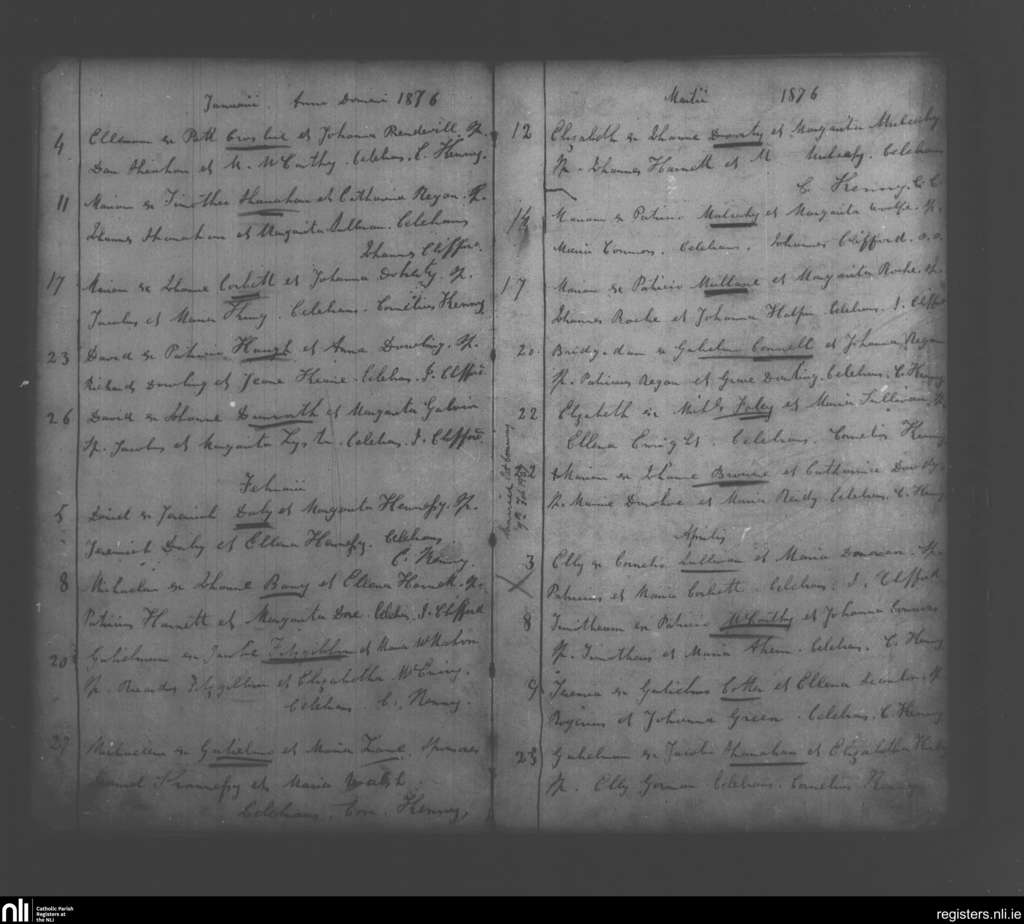 Januarii. Anno Domini 1876
4 Ellenam ex Patk et Johanna Sp.
Dan Sheahan et M. McCarthy. Celebrans. C. Kenny.
11 Mariam ex Timotheo Shanahan et Catharina Regan. Sp.
Johannes Shanahan et Margarita Sullivan. Celebrans
Johannes Clifford.
17 Mariam ex Johanne Corbett et Johanna Doherty. Sp.
Jacobus et Maria Celebrans. Cornelius Kenny
23 David ex Patricio Haugh et Anna Dowling. Sp.
Richard Dowling et Celebrans. J. Clifford
26 David ex Johanne et Margarita Galvin
Sp. Jacobus et Margarita Celebrans. J. Clifford.
Februarii
5 Daniel ex Jeremiah Daly et Margarita Hennessy. Sp.
Jeremiah Daly et Ellena Hennessy. Celebrans
C. Kenny.
8 Michaelem ex Johanne Barry et Ellena Harnett. Sp.
Patricius Harnett et Margarita Dore. Celebrans. J. Clifford
20 Gulielmum ex Jacobo Fitzgibbon et Maria McMahon
Sp. Ricardus Fitzgibbon et Elizabetha
Celebrans C. Kenny.
27 Michaelem ex Gulielmo et Maria Lane. Sponsores
Daniel et Maria Walsh
Celebrans. Corn. Kenny.
Martii 1876
12 Elizabeth ex Johanne et Margarita Mulcahy
Sp. Johannes Harnett et M Mulcahy. Celebrans
C. Kenny. C. C.
14 Mariam ex Patricio Mulcahy et Margarita Woolfe. Sp.
Maria Connors. Celebrans. Johannes Clifford. C.C.
17 Mariam ex Patricio Mullane et Margarita Roche. Sp.
Johannes Roche et Johanna Halpin. Celebrans. J. Clifford
20. Bridgidam ex Gulielmo Connell et Johanna Regan
Sp. Patricius Regan et Celebrans. C. Kenny
22 Elizabeth ex Michl Foley et Maria Sullivan. Sp.
Ellena Celebrans. Cornelius Kenny
married
9th Feb
22 Mariam ex Johanne Browne et Catharina
Sp. et Maria Reidy. Celebrans. C. Kenny
Aprilis
3 Elly ex Cornelio Sullivan et Maria Donovan. Sp.
Patricius et Maria Corbett. Celebrans. J. Clifford
8 Timotheum ex Patricio McCarthy et Johanna Connors
Sp. Timotheus et Maria Ahern. Celebrans. C. Kenny
9 ex Gulielmo Cotter et Ellena Sp.
Rogerius et Johanna Green. Celebrans. C. Kenny
23 Gulielmum ex Jacobo Shanahan et Elizabetha
Sp. Elly Gorman Celebrans. Cornelius Kenny
nli Catholic Parish
Registers at
the NLI
registers.nli.ie